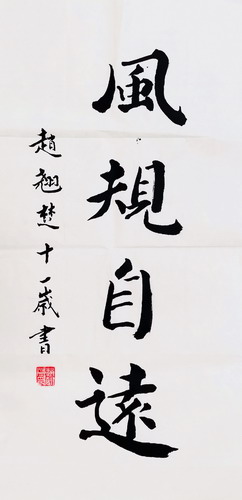 風規自遠
趙翹楚十一歲書